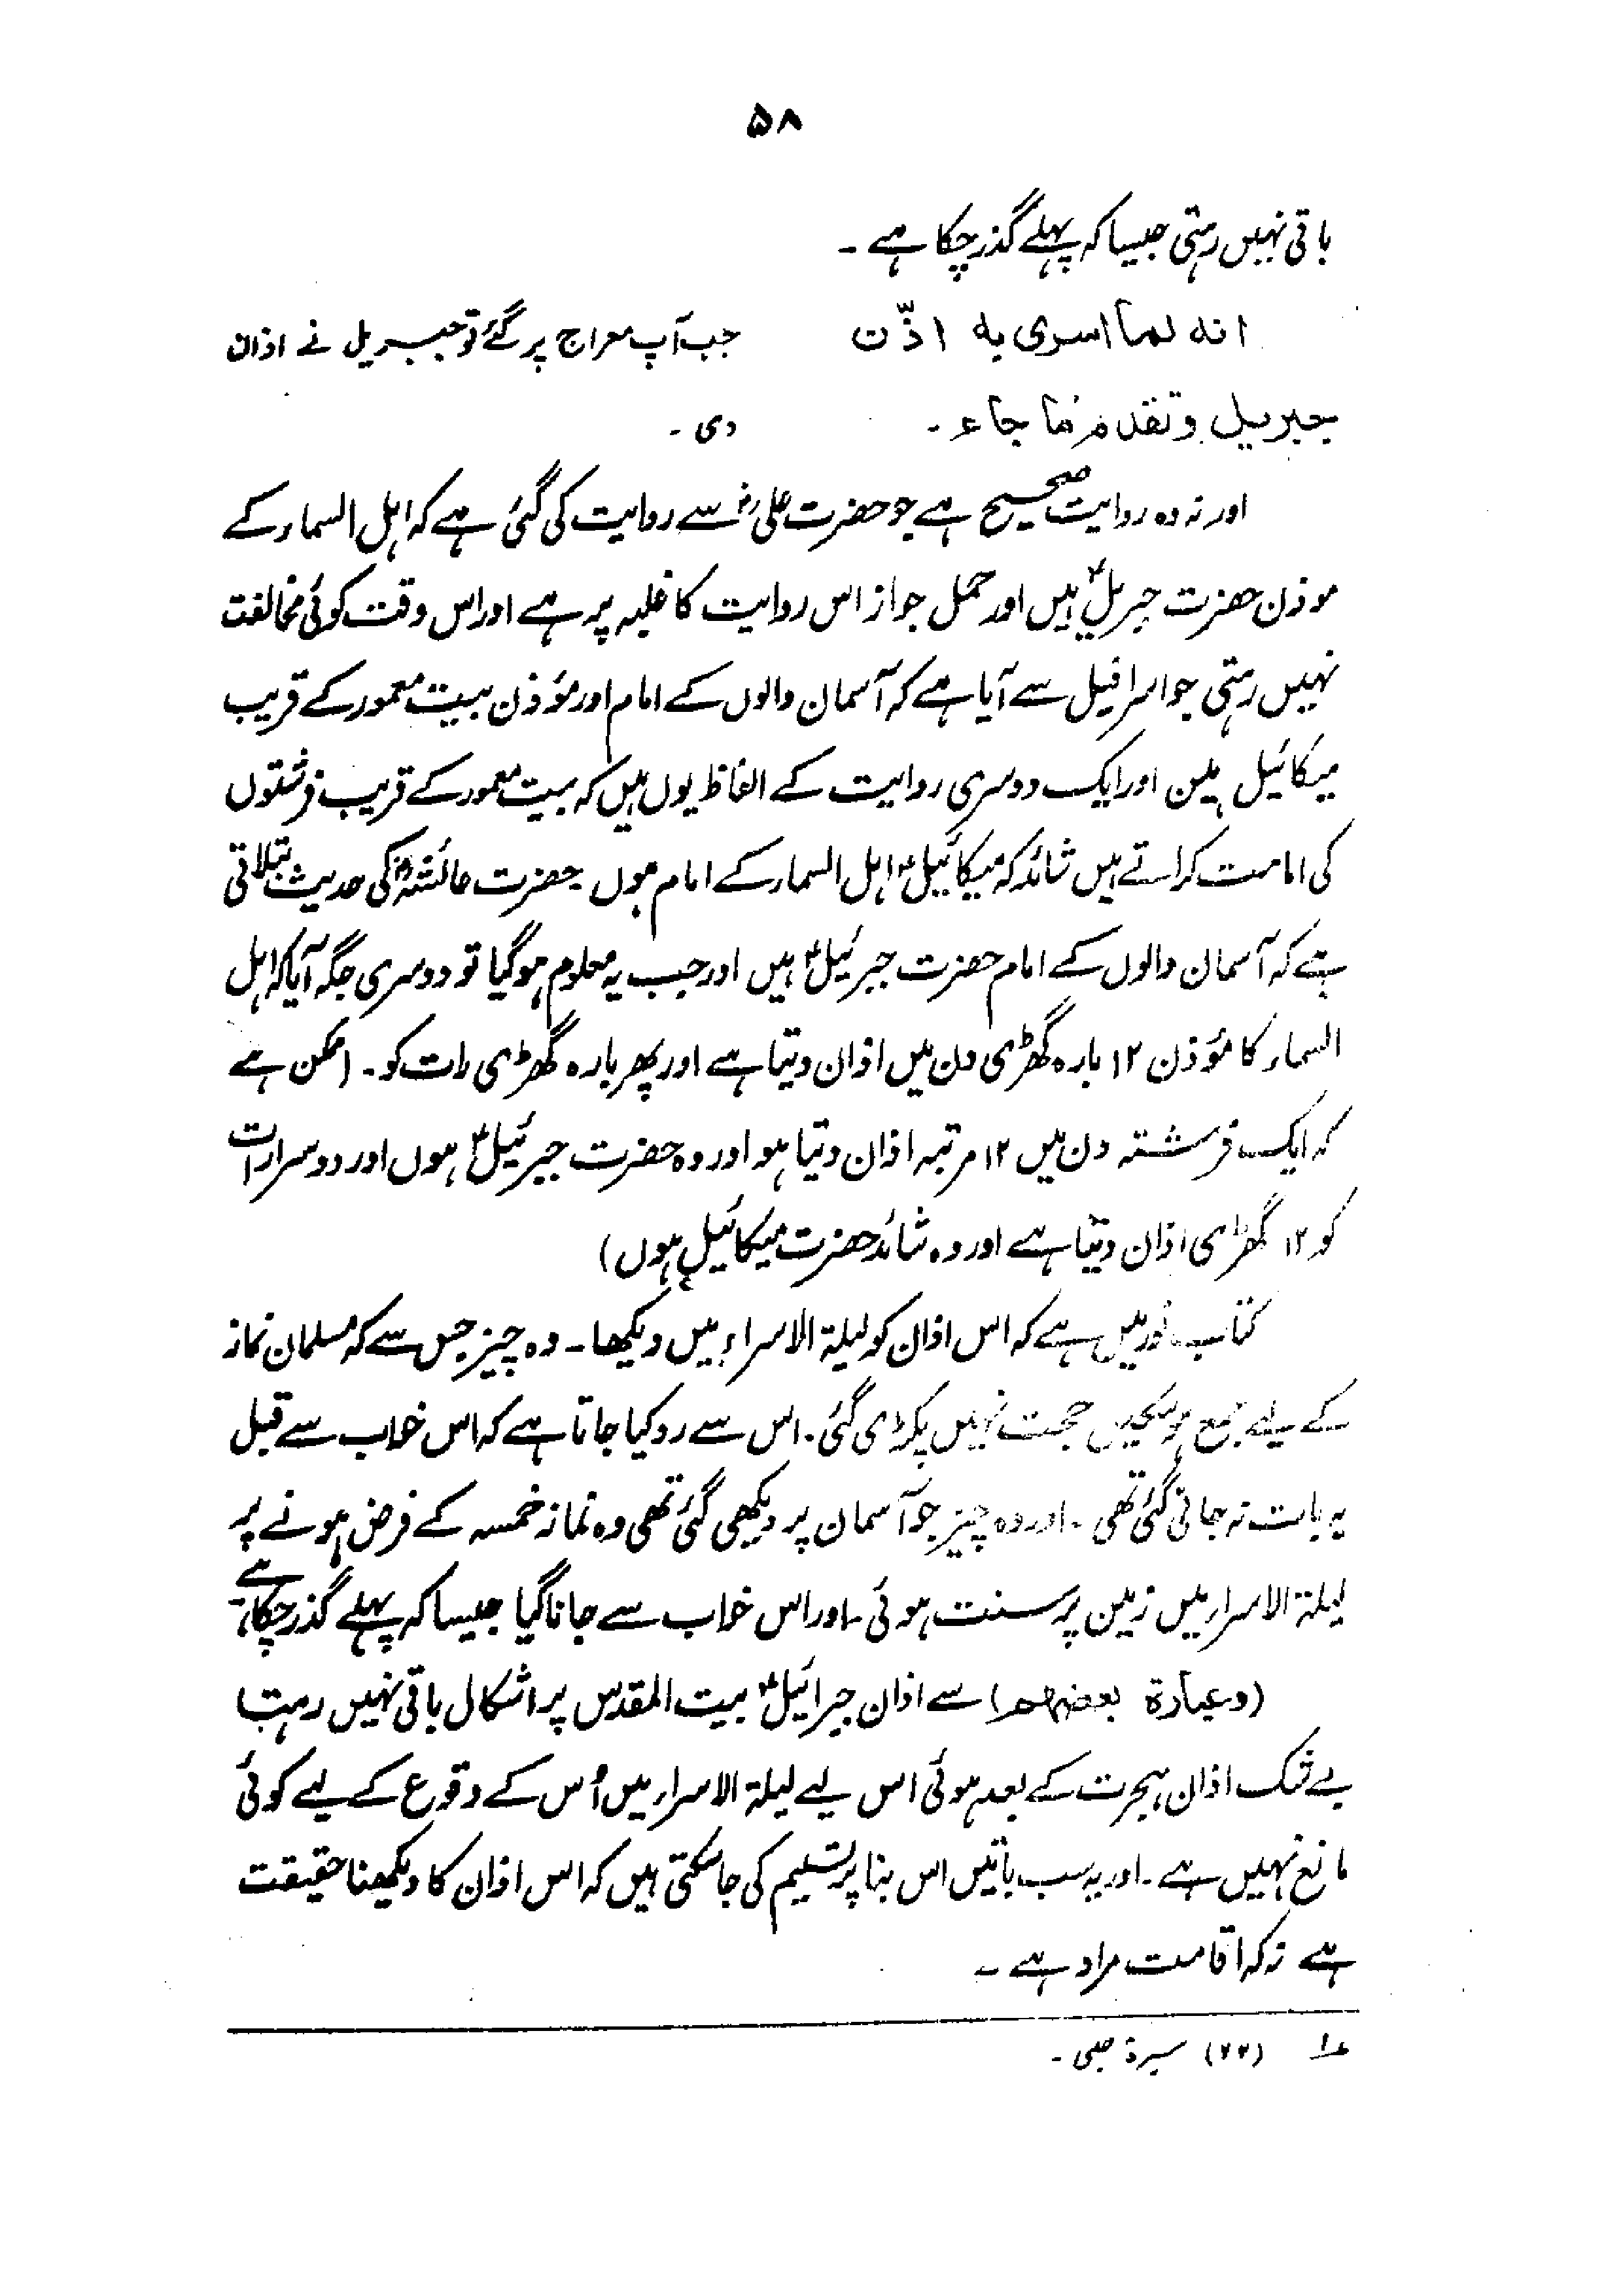 ۵۸
باقی نہیں رہتی جیسا کہ پہلے گذر چکا ہے ۔
انه لما اسری به اذّن
جبریل وتقدم ما جاء ۔
جب آپ معراج پر گئے تو جبریل نے اذان
دی ۔
اور نہ وہ روایت صحیح ہے جو حضرت علیؓ سے روایت کی گئی ہے کہ اہل السماء کے
موذن حضرت جبریلؑ ہیں اور حمل جواز اس روایت کا غلبہ پر ہے اور اس وقت کوئی مخالفت
نہیں رہتی جو اسرافیل سے آیا ہے کہ آسمان والوں کے امام اور مؤذن بیت معمور کے قریب
میکائیل ہیں اور ایک دوسری روایت کے الفاظ یوں ہیں کہ بیت معمور کے قریب فرشتوں
کی امامت کراتے ہیں شائد کہ میکائیلؑ اہل السماء کے امام ہوں حضرت عائشہؓ کی حدیث بتلاتی
ہے کہ آسمان والوں کے امام حضرت جبرئیلؑ ہیں اور جب یہ معلوم ہو گیا تو دوسری جگہ آیا کہ اہل
السماء کا مؤذن ۱۲ بارہ گھڑی دن میں اذان دیتا ہے اور پھر بارہ گھڑی رات کو ۔ (ممکن ہے
کہ ایک فرشتہ دن میں ۱۲ مرتبہ اذان دیتا ہو اور وہ حضرت جبرئیلؑ ہوں اور دوسرا رات
کو ۱۲ گھڑی اذان دیتا ہے اور وہ شائد حضرت میکائیل ہوں)
کتاب نور میں ہے کہ اس اذان کو لیلۃ الاسراء میں دیکھا ۔ وہ چیز جس سے کہ مسلمان نماز
کے لیے جمع ہو سکیں حجت نہیں پکڑی گئی ۔ اس سے رد کیا جاتا ہے کہ اس خواب سے قبل
یہ بات نہ جانی گئی تھی ۔ اور وہ چیز جو آسمان پر دیکھی گئی تھی وہ نماز خمسہ کے فرض ہونے پر
لیلۃ الاسراء میں زمین پر سنت ہوئی ۔ اور اس خواب سے جانا گیا جیسا کہ پہلے گذر چکا ہے ۔
(وعبارة بعضهم) سے اذان جبرائیلؑ بیت المقدس پر اشکال باقی نہیں رہتا
بے شک اذان ہجرت کے بعد ہوئی اس لیے لیلۃ الاسراء میں اُس کے وقوع کے لیے کوئی
مانع نہیں ہے ۔ اور یہ سب باتیں اس بنا پر تسلیم کی جا سکتی ہیں کہ اس اذان کا دیکھنا حقیقت
ہے نہ کہ اقامت مراد ہے ۔
؏۱ (۷۷) سیرۃ حلبی ۔